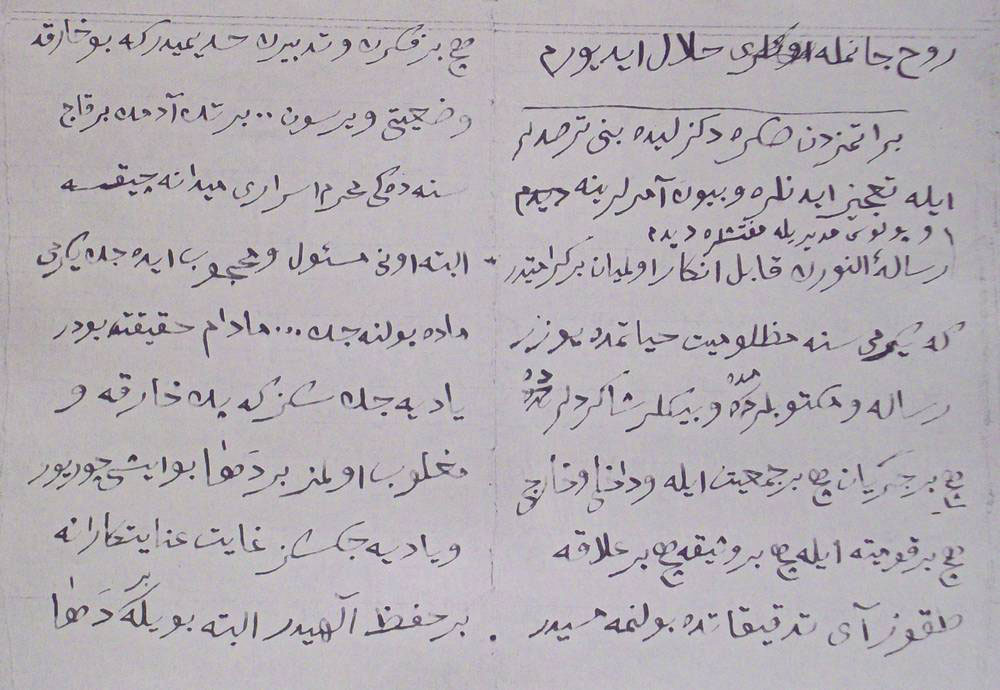 روح جانمله اونلری حلال ایدیورم
براتمزدن صكره دكزلیده بنی ترصدلر
ایله تعجیز ایدنلره و بیوك آمرلرینه دیدم
و پولیس مدیریله مفتشلره دیدم
رسالۀ النورك قابل انكار اولمیان بر كرامتیدر
كه یكرمی سنه مظلومیت حیاتمده یوزر
رساله و مكتوبلرمده و بیكلر شاكردلرده
هیچ بر جریان هیچ بر جمعیت ایله و داخلی و خارجی
هیچ بر قومیته ایله هیچ بر وثیقه هیچ بر علاقه
طقوز آی تدقیقاتده بولنمه مسیدر .
هیچ بر فكرك و تدبیرك حدیمیدر كه بو خارقه
وضعیتی ویرسون .. بر تك آدمك بر قاچ
سنه ده كی محرم اسراری میدانه چیقسه
البته اونی مسئول و محجوب ایده جك یكرمی
ماده بولنه جق ... مادام حقیقت بودر
یا دیه جكسكز كه پك خارقه و
مغلوب اولمز بر دها بو ایشی چویریور
و یا دیه جكسكز غایت عنایتكارانه
بر حفظ آلهیدر البته بویله بر دها